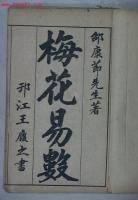 邵康節先生著
梅花易數
邗江王廑之書